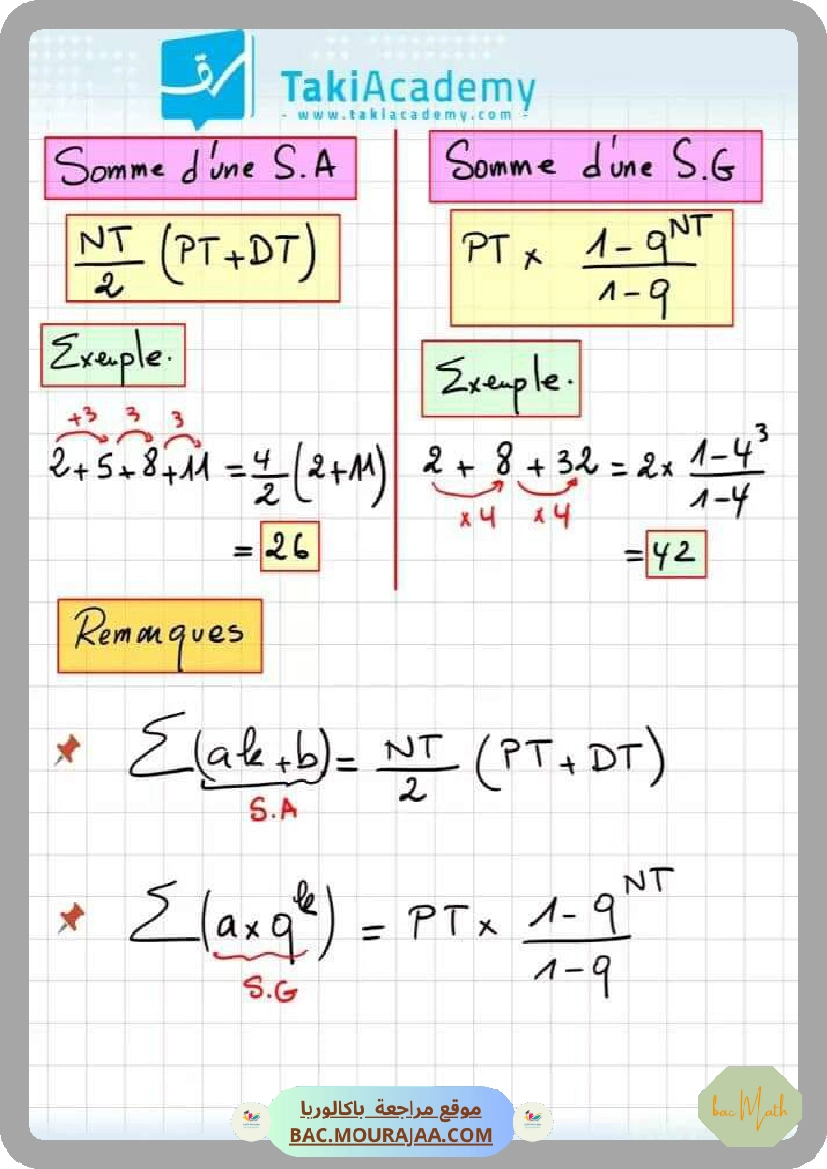 TakiAcademy
- www.takiacademy.com -
Somme d'une S.A
NT/2 (PT+DT)
Exemple.
+3 3 3
2+5+8+11 = 4/2 (2+11)
= 26
Somme d'une S.G
PT x (1-q^NT)/(1-q)
Exemple.
2 + 8 + 32 = 2x (1-4^3)/(1-4)
x4 x4
= 42
Remarques
Σ(ak+b) = NT/2 (PT+DT)
S.A
Σ(axq^k) = PT x (1-q^NT)/(1-q)
S.G
موقع مراجعة باكالوريا
BAC.MOURAJAA.COM
bac Math